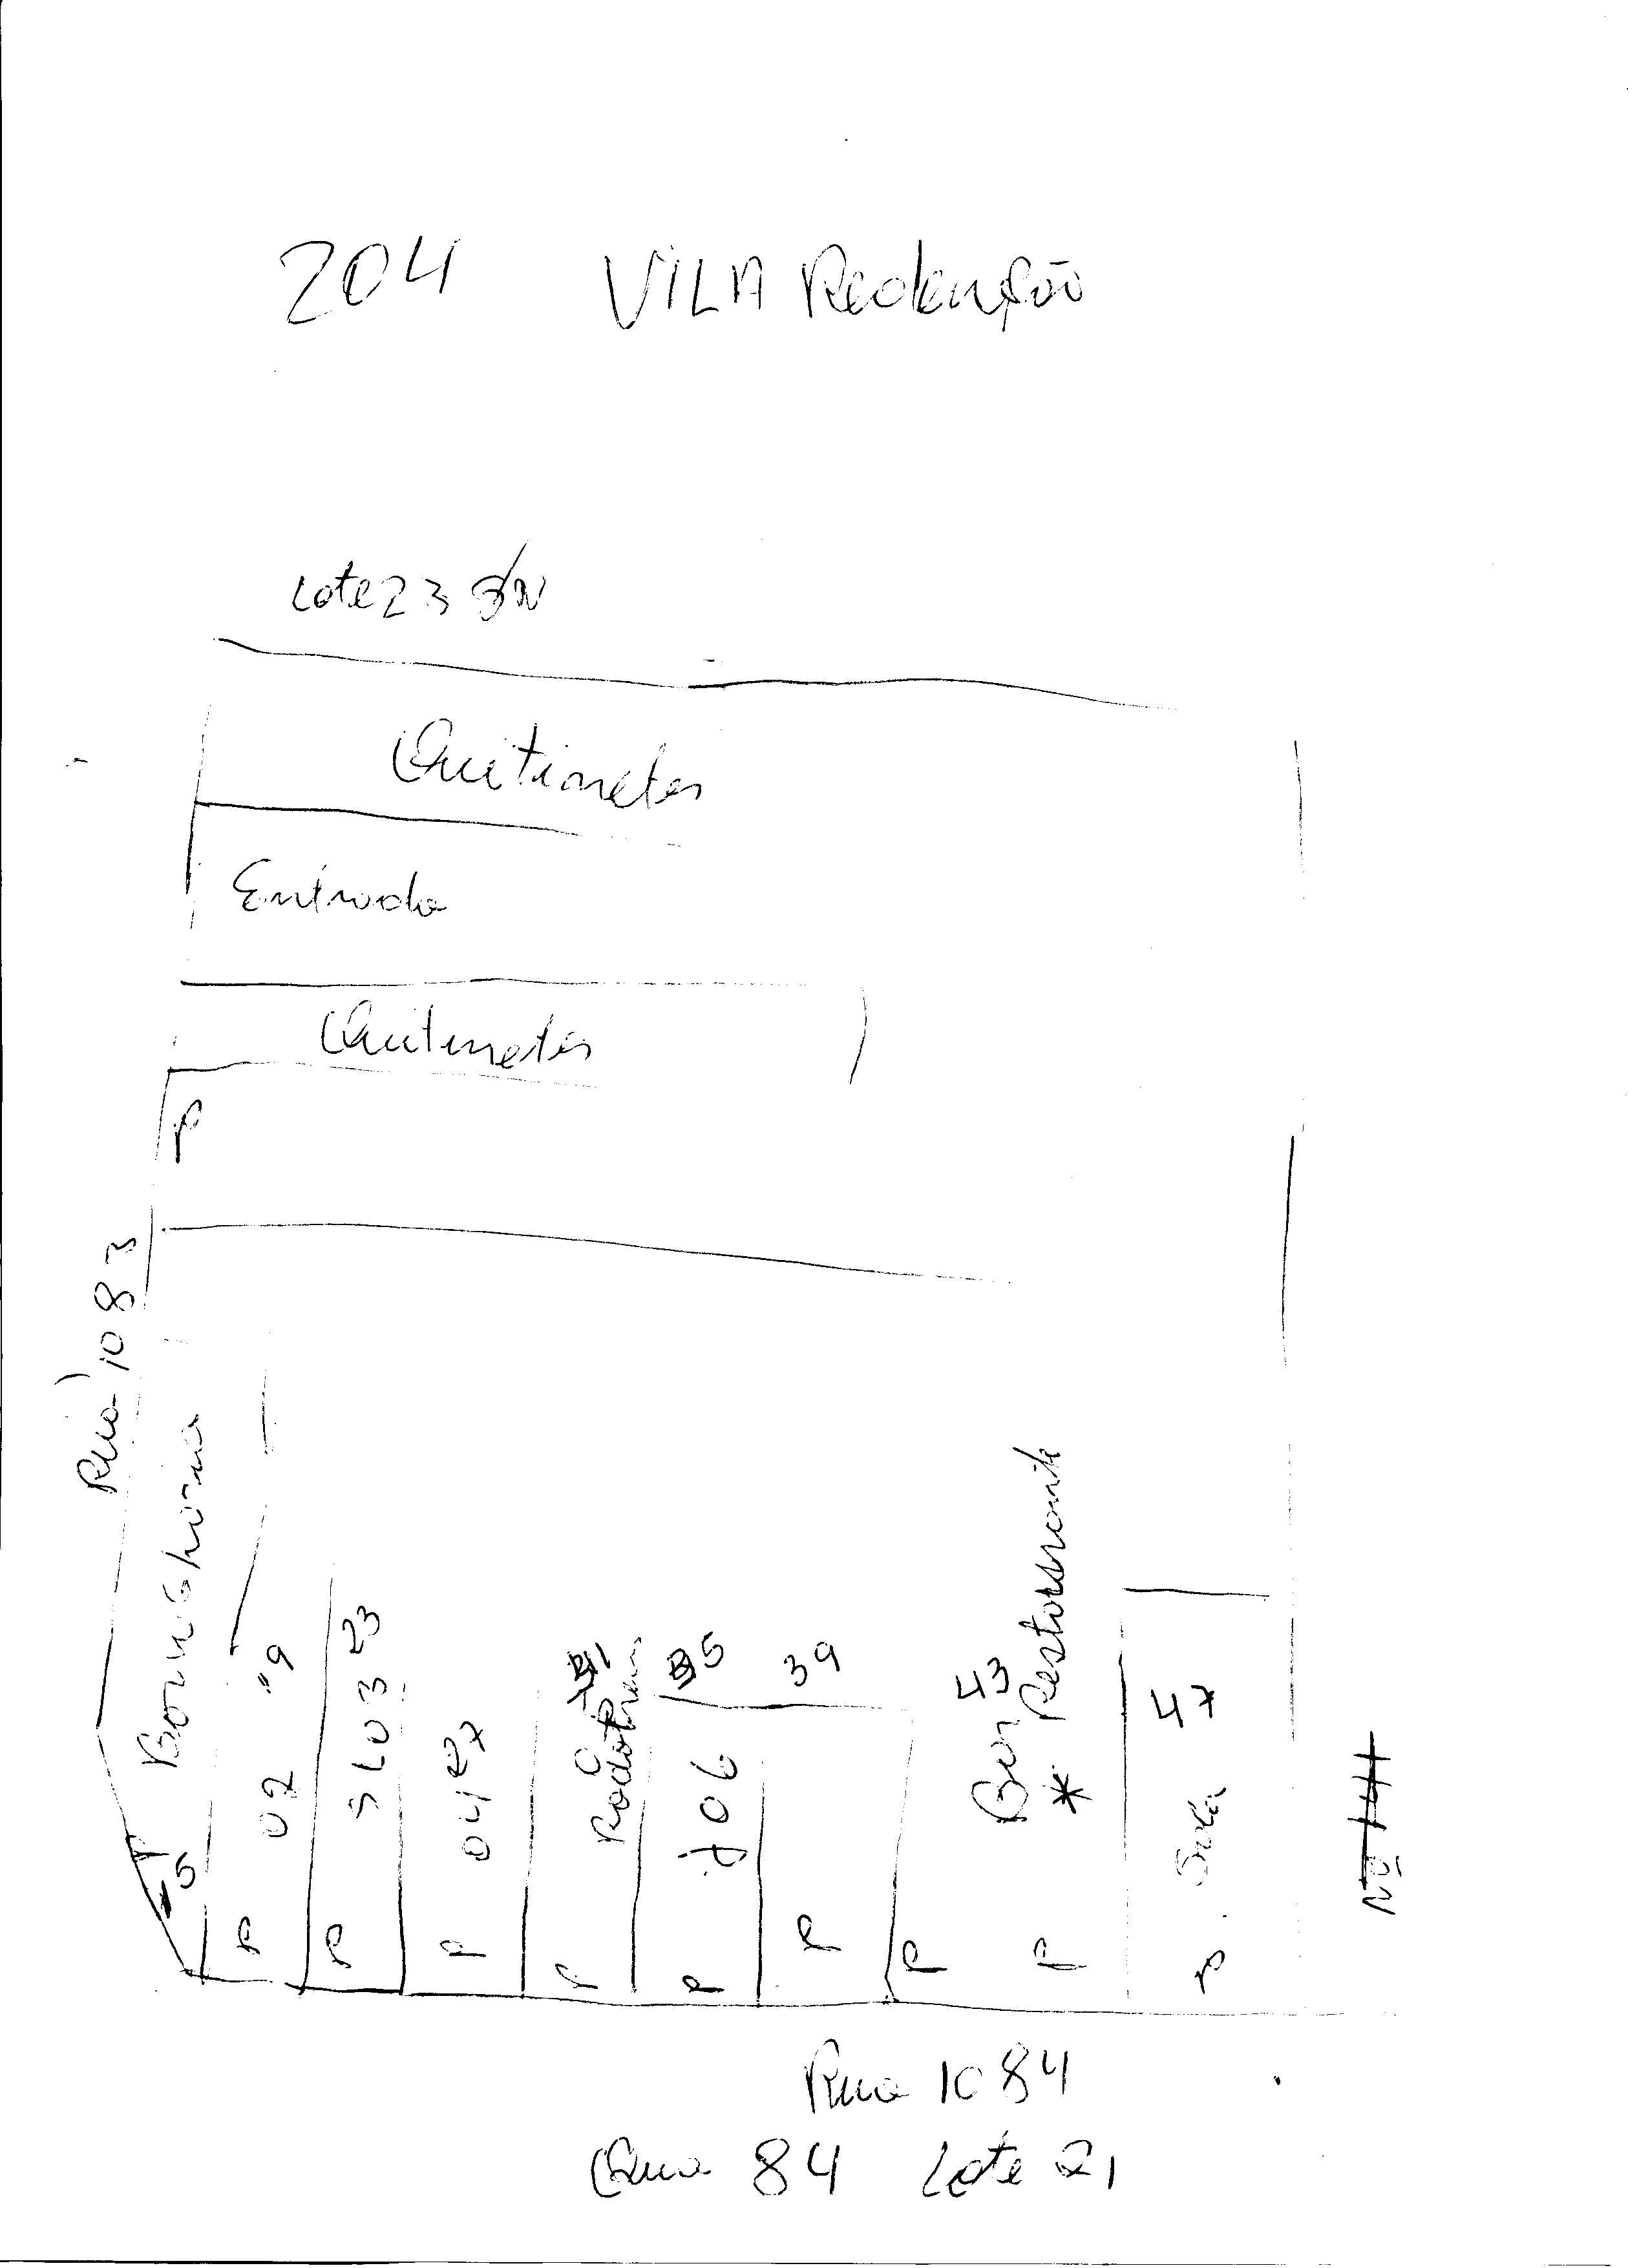 204 VILA Redenção
Lote 23 S/N
Quitinetes
Entrada
Quitinetes
P
Rua 1083
Borracharia
P
5
02 19
P
SL03 23
P
04 27
P
31
P
35
06
P
39
P
43
Bar Restaurante
*
P
P
47
P
Nº 141
Rua 1084
Qua 84 Lote 21